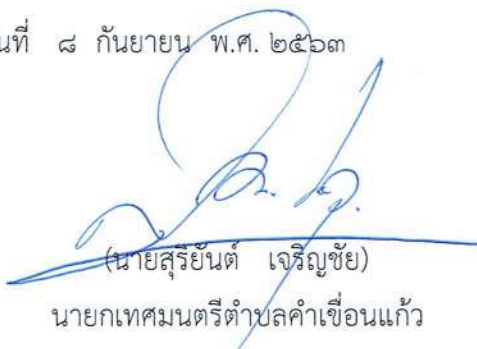 นที่ ๘ กันยายน พ.ศ. ๒๕๖๓
(นายสุริยันต์ เจริญชัย)
นายกเทศมนตรีตำบลคำเขื่อนแก้ว